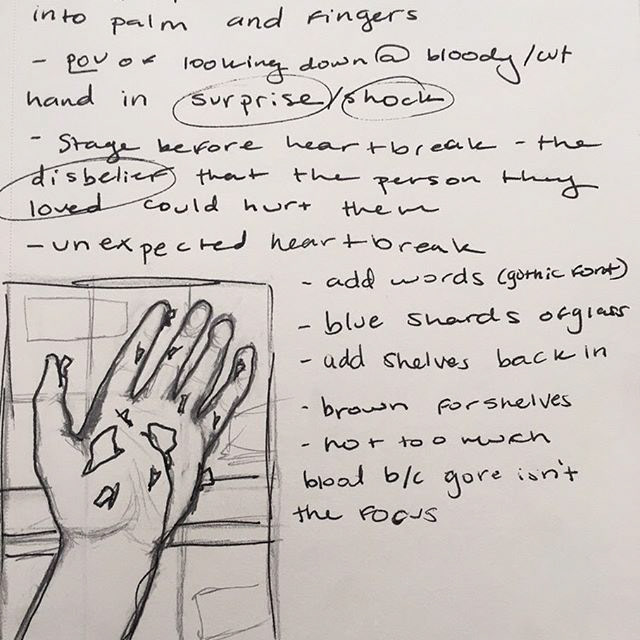 into palm and fingers
- POV of looking down @ bloody/cut
hand in surprise/shock
- Stage before heartbreak - the
disbelief that the person they
loved could hurt them
- unexpected heartbreak
- add words (gothic font)
- blue shards of glass
- add shelves back in
- brown for shelves
- not too much
blood b/c gore isn't
the focus